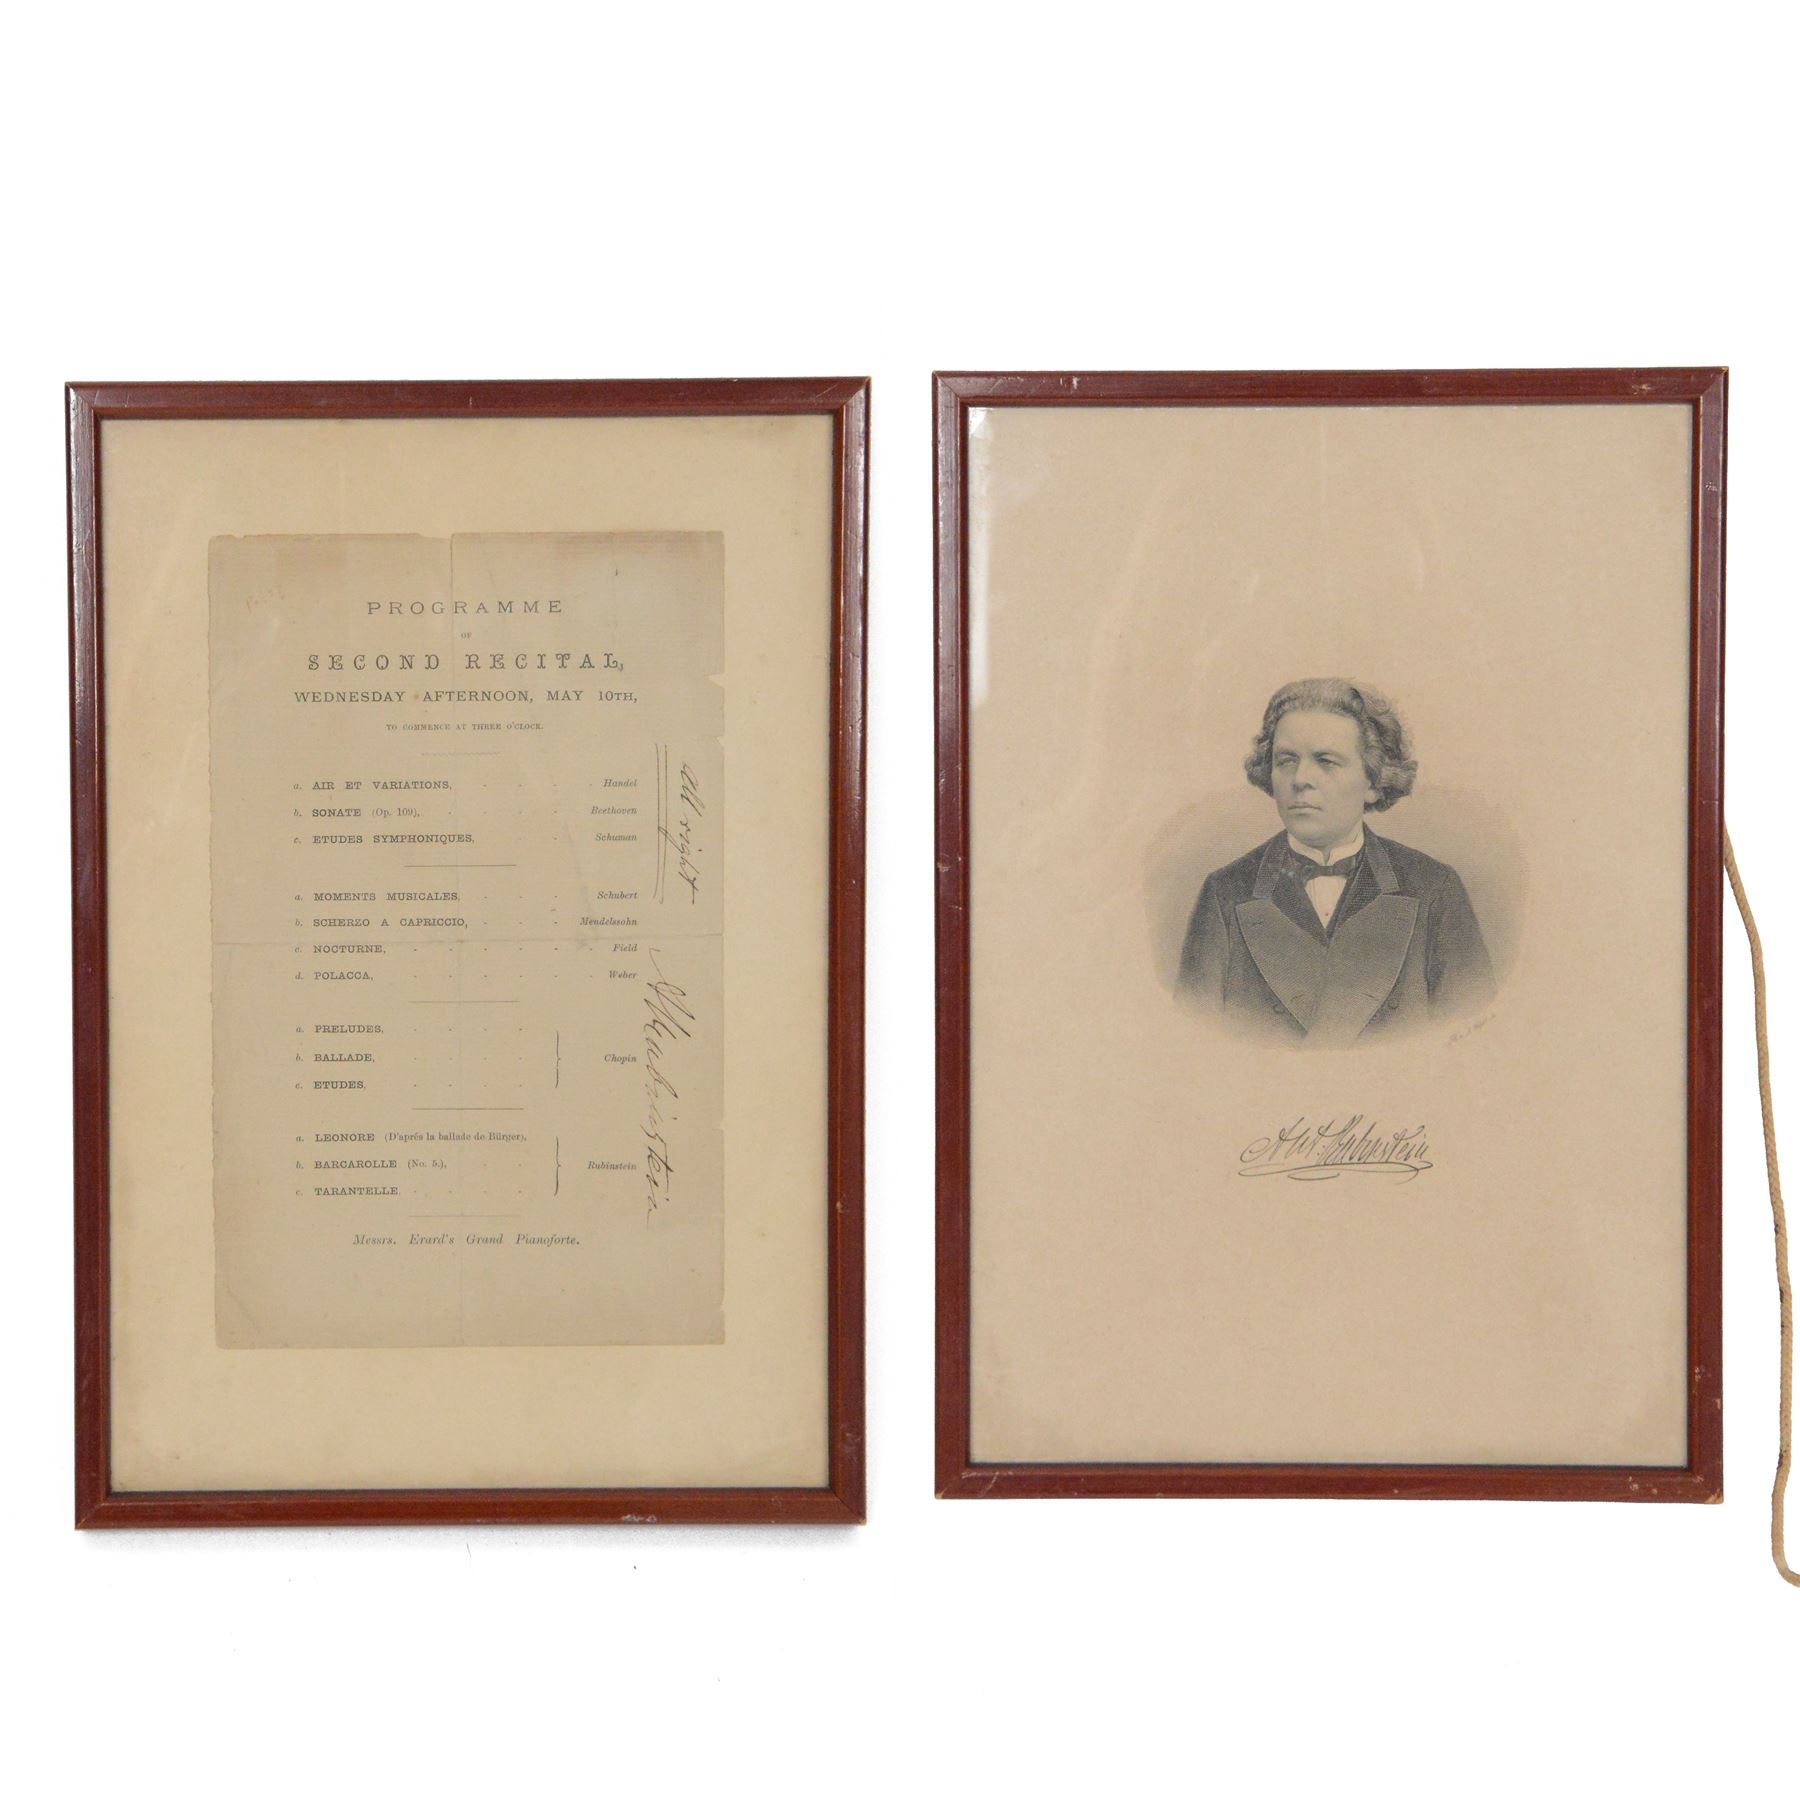 PROGRAMME
OF
SECOND RECITAL,
WEDNESDAY AFTERNOON, MAY 10TH,
TO COMMENCE AT THREE O'CLOCK.
a. AIR ET VARIATIONS, - - - - Handel
b. SONATE (Op. 109), - - - - Beethoven
c. ETUDES SYMPHONIQUES, - - Schuman
a. MOMENTS MUSICALES, - - - Schubert
b. SCHERZO A CAPRICCIO, - - - Mendelssohn
c. NOCTURNE, - - - - - - Field
d. POLACCA, - - - - - - Weber
a. PRELUDES, - - - -
b. BALLADE, - - - - Chopin
c. ETUDES, - - - -
a. LEONORE (D'aprés la ballade de Bürger),
b. BARCAROLLE (No. 5.), - - Rubinstein
c. TARANTELLE. - - - -
Messrs. Erard's Grand Pianoforte.
All right
Rubinstein
Ant. Rubinstein